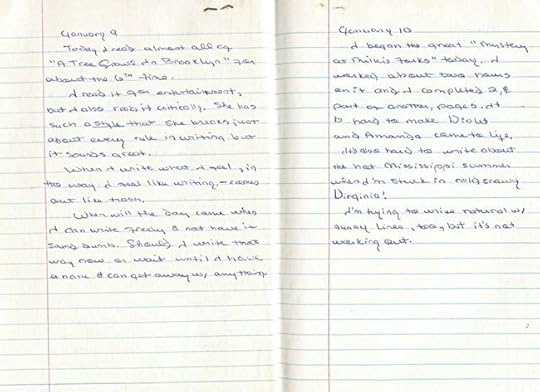 January 9
Today I read almost all of
"A Tree Grows In Brooklyn" for
about the 6th time.
I read it for entertainment,
but I also read it critically. She has
such a style that she breaks just
about every rule in writing but
it sounds great.
When I write what I feel, in
the way I feel like writing, - comes
out like trash.
When will the day come when
I can write freely & not have it
sound dumb. Should I write that
way now or wait until I have
a name & can get away w/ anything.
January 10
I began the great "Mystery
at Mike's Forks" today. I
worked about two hours
on it and I completed 2, &
part of another, pages. It
is hard to make Violet
and Amanda come to life,
It's also hard to write about
the hot Mississippi summer
when I'm stuck in cold snowy
Virginia!
I'm trying to write natural w/
funny lines, too, but it's not
working out.